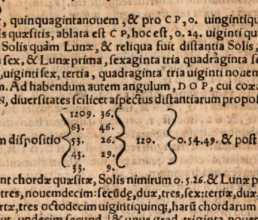 , quinquagintanouem, & pro C P, 0. uingintiqu
us quæsitis, ablata est C P, hoc est, 0. 24. uiginti qu
Solis quàm Lunæ, & reliqua fuit distantia Solis,
sex, & Lunæ prima, sexaginta tria quadraginta se
uiginti sex, tertia, quadraginta tria uiginti nouem
m. Ad habendum autem angulum, D O P, cui coxa
N, diuersitates scilicet aspectus distantiarum propo
1209. 36.
63. 46.
m dispositio 53. 26. 120. 0. 54. 49. & post
43. 29.
33. 9.
nt chordæ quæsitæ, Solis nimirum 0. 5. 26. & Lunæ p
tres, nouemdecim: secũdę, duæ, tres, sex: tertiæ, duæ
tres octodecim uigintiquinq;, harũ chordarum